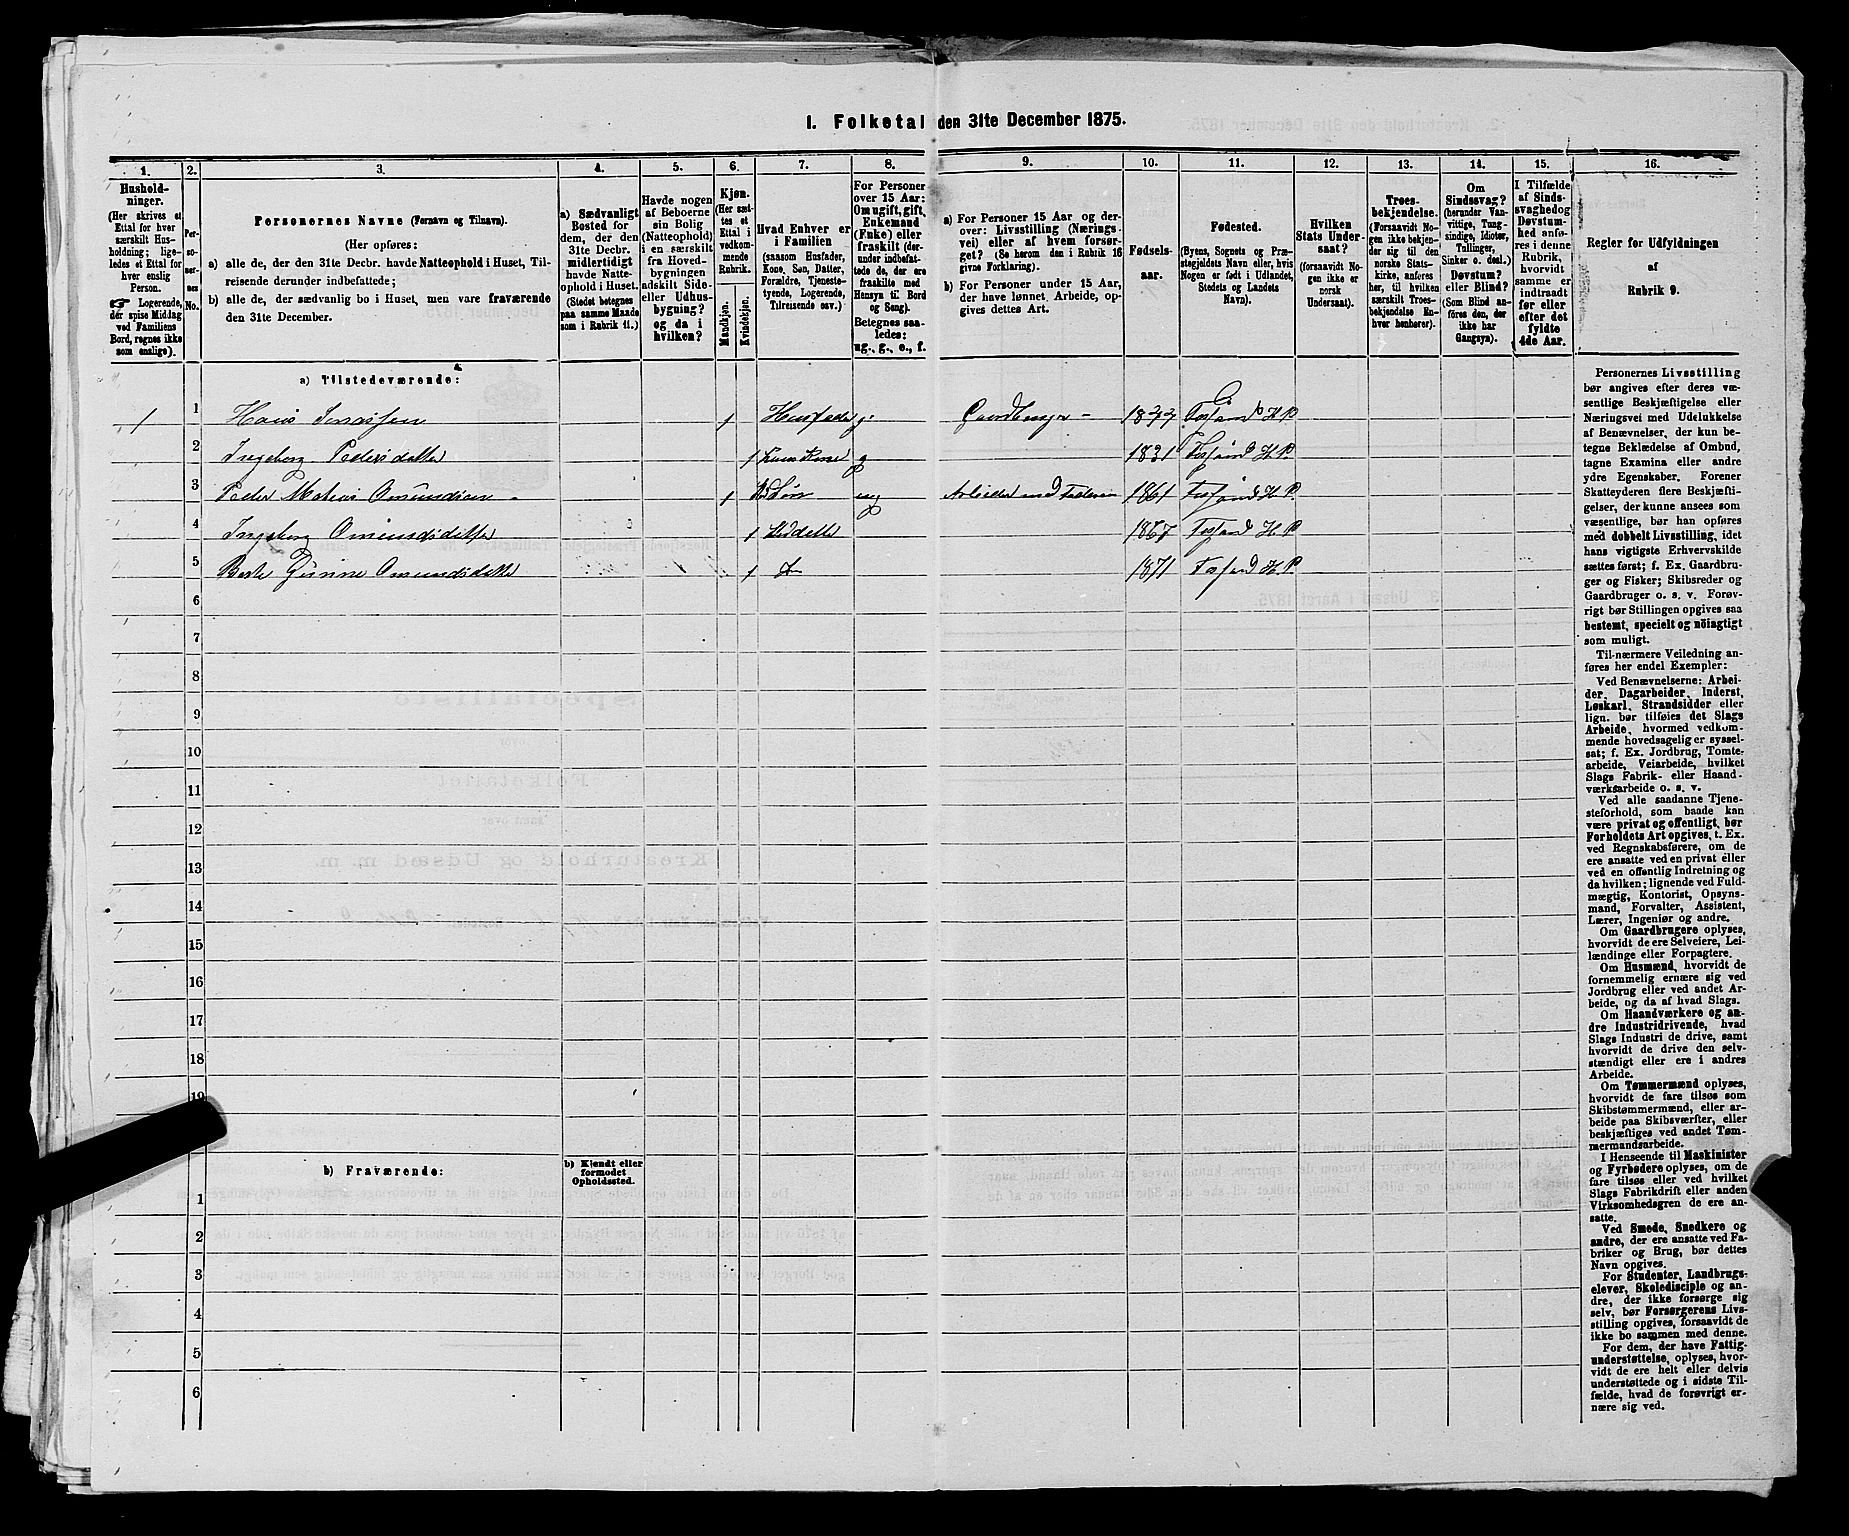 1. Folketal den 31te December 1875.
1. 2. 3. 4. 5. 6. 7. 8. 9. 10. 11. 12. 13. 14. 15. 16.
Husholdninger.
(Her skrives et Ettal for hver særskilt Husholdning; ligeledes et Ettal for hver enslig Person.
☛ Logerende, der spise Middag ved Familiens Bord, regnes ikke som enslige).
Personernes No.
Personernes Navne (Fornavn og Tilnavn).
(Her opføres:
a) alle de, der den 31te Decbr. havde Natteophold i Huset, Tilreisende derunder indbefattede;
b) alle de, der sædvanlig bo i Huset, men vare fraværende den 31te December.
a) Sædvanligt Bosted for dem, der den 31te Decbr. midlertidigt havde Natteophold i Huset.
(Stedet betegnes paa samme Maade som i Rubrik 11.)
Havde nogen af Beboerne sin Bolig (Natteophold) i en særskilt fra Hovedbygningen adskilt Side- eller Udhusbygning? og da i hvilken?
Kjøn.
(Her sættes et Ettal i vedkommende Rubrik.
Mandkjøn.
Kvindekjøn.
Hvad Enhver er i Familien
(saasom Husfader, Kone, Søn, Datter, Forældre, Tjenestetyende, Logerende, Tilreisende osv.)
For Personer over 15 Aar: Om ugift, gift, Enkemand (Enke) eller fraskilt (derunder indbefattede de, der ere fraskilte med Hensyn til Bord og Seng).
Betegnes saaledes: ug., g., e., f.
a) For Personer 15 Aar og derover: Livsstilling (Næringsvei) eller af hvem forsørget? (Se herom den i Rubrik 16 givne Forklaring).
b) For Personer under 15 Aar, der have lønnet Arbeide, opgives dettes Art.
Fødselsaar.
Fødested.
(Byens, Sognets og Præstegjeldets Navn eller, hvis Nogen er født i Udlandet, Stedets og Landets Navn).
Hvilken Stats Undersaat?
(forsaavidt Nogen ikke er norsk Undersaat).
Troesbekjendelse.
(Forsaavidt Nogen ikke bekjender sig til den norske Statskirke, anføres her, til hvilken særskilt Troesbekjendelse Enhver henhører).
Om Sindssvag?
(herunder Vanvittige, Tungsindige, Idioter, Tullinger, Sinker o. desl.).
Døvstum? eller Blind?
(Som Blind anføres den, der ikke har Gangsyn).
I Tilfælde af Sindssvaghed og Døvstumhed anføres i denne Rubrik, hvorvidt samme er indtraadt før eller efter det fyldte 4de Aar.
Regler for Udfyldningen af Rubrik 9.
a) Tilstedeværende:
1 1 Hans 1 Husfader g. Gaardbruger - H P
2 Ingeborg Pedersdatter 1 g 1831 H P
3 Peder Matias Omundsen 1 Søn ug Arbeider med Faderen 1861 H P
4 Ingeborg Omundsdatter 1 1867 H P
5 Omundsdatter 1 1871 H P
6
7
8
9
10
11
12
13
14
15
16
17
18
19
b) Fraværende:
b) Kjendt eller formodet Opholdssted.
1
2
3
4
5
6
Personernes Livsstilling bør angives efter deres væsentlige Beskjæftigelse eller Næringsvei med Udelukkelse af Benævnelser, der kun betegne Beklædelse af Ombud, tagne Examina eller andre ydre Egenskaber. Forener Skatteyderen flere Beskjæftigelser, der kunne ansees som væsentlige, bør han opføres med dobbelt Livsstilling, idet hans vigtigste Erhvervskilde sættes først; f. Ex. Gaardbruger og Fisker; Skibsreder og Gaardbruger o. s. v. Forøvrigt bør Stillingen opgives saa bestemt, specielt og nöiagtigt som muligt.
Til nærmere Veiledning anføres her endel Exempler:
Ved Benævnelserne: Arbeider, Dagarbeider, Inderst, Løskarl, Strandsidder eller lign. bør tilføies det Slags Arbeide, hvormed vedkommende hovedsagelig er sysselsat; f. Ex. Jordbrug, Tomtearbeide, Veiarbeide, hvilket Slags Fabrik- eller Haandværksarbeide o. s. v.
Ved alle saadanne Tjenesteforhold, som baade kan være privat og offentligt, bør Forholdets Art opgives, t. Ex. ved Regnskabsførere, om de ere ansatte ved en privat eller ved en offentlig Indretning og da hvilken; lignende ved Fuldmægtig, Kontorist, Opsynsmand, Forvalter, Assistent, Lærer, Ingeniør og andre.
Om Gaardbrugere oplyses, hvorvidt de ere Selveiere, Leilændinge eller Forpagtere.
Om Husmænd, hvorvidt de fornemmelig ernære sig ved Jordbrug eller ved andet Arbeide, og da af hvad Slags.
Om Haandværkere og andre Industridrivende, hvad Slags Industri de drive, samt hvorvidt de drive den selvstændigt eller ere i andres Arbeide.
Om Tømmermænd oplyses, hvorvidt de fare tilsøs som Skibstømmermænd, eller arbeide paa Skibsværfter, eller beskjæftiges ved andet Tømmermandsarbeide.
I Henseende til Maskinister og Fyrbødere oplyses, om de fare tilsøs eller ved hvilket Slags Fabrikdrift eller anden Virksomhedsgren de ere ansatte.
Ved Smede, Snedkere og andre, der ere ansatte ved Fabriker og Brug, bør dettes Navn opgives.
For Studenter, Landbrugselever, Skoledisciple og andre, der ikke forsørge sig selv, bør Forsørgerens Livsstilling opgives, forsaavidt de ikke bo sammen med denne.
For dem, der have Fattigunderstøttelse, oplyses, hvorvidt de ere helt eller delvis understøttede og i sidste Tilfælde, hvad de forøvrigt ernære sig ved.